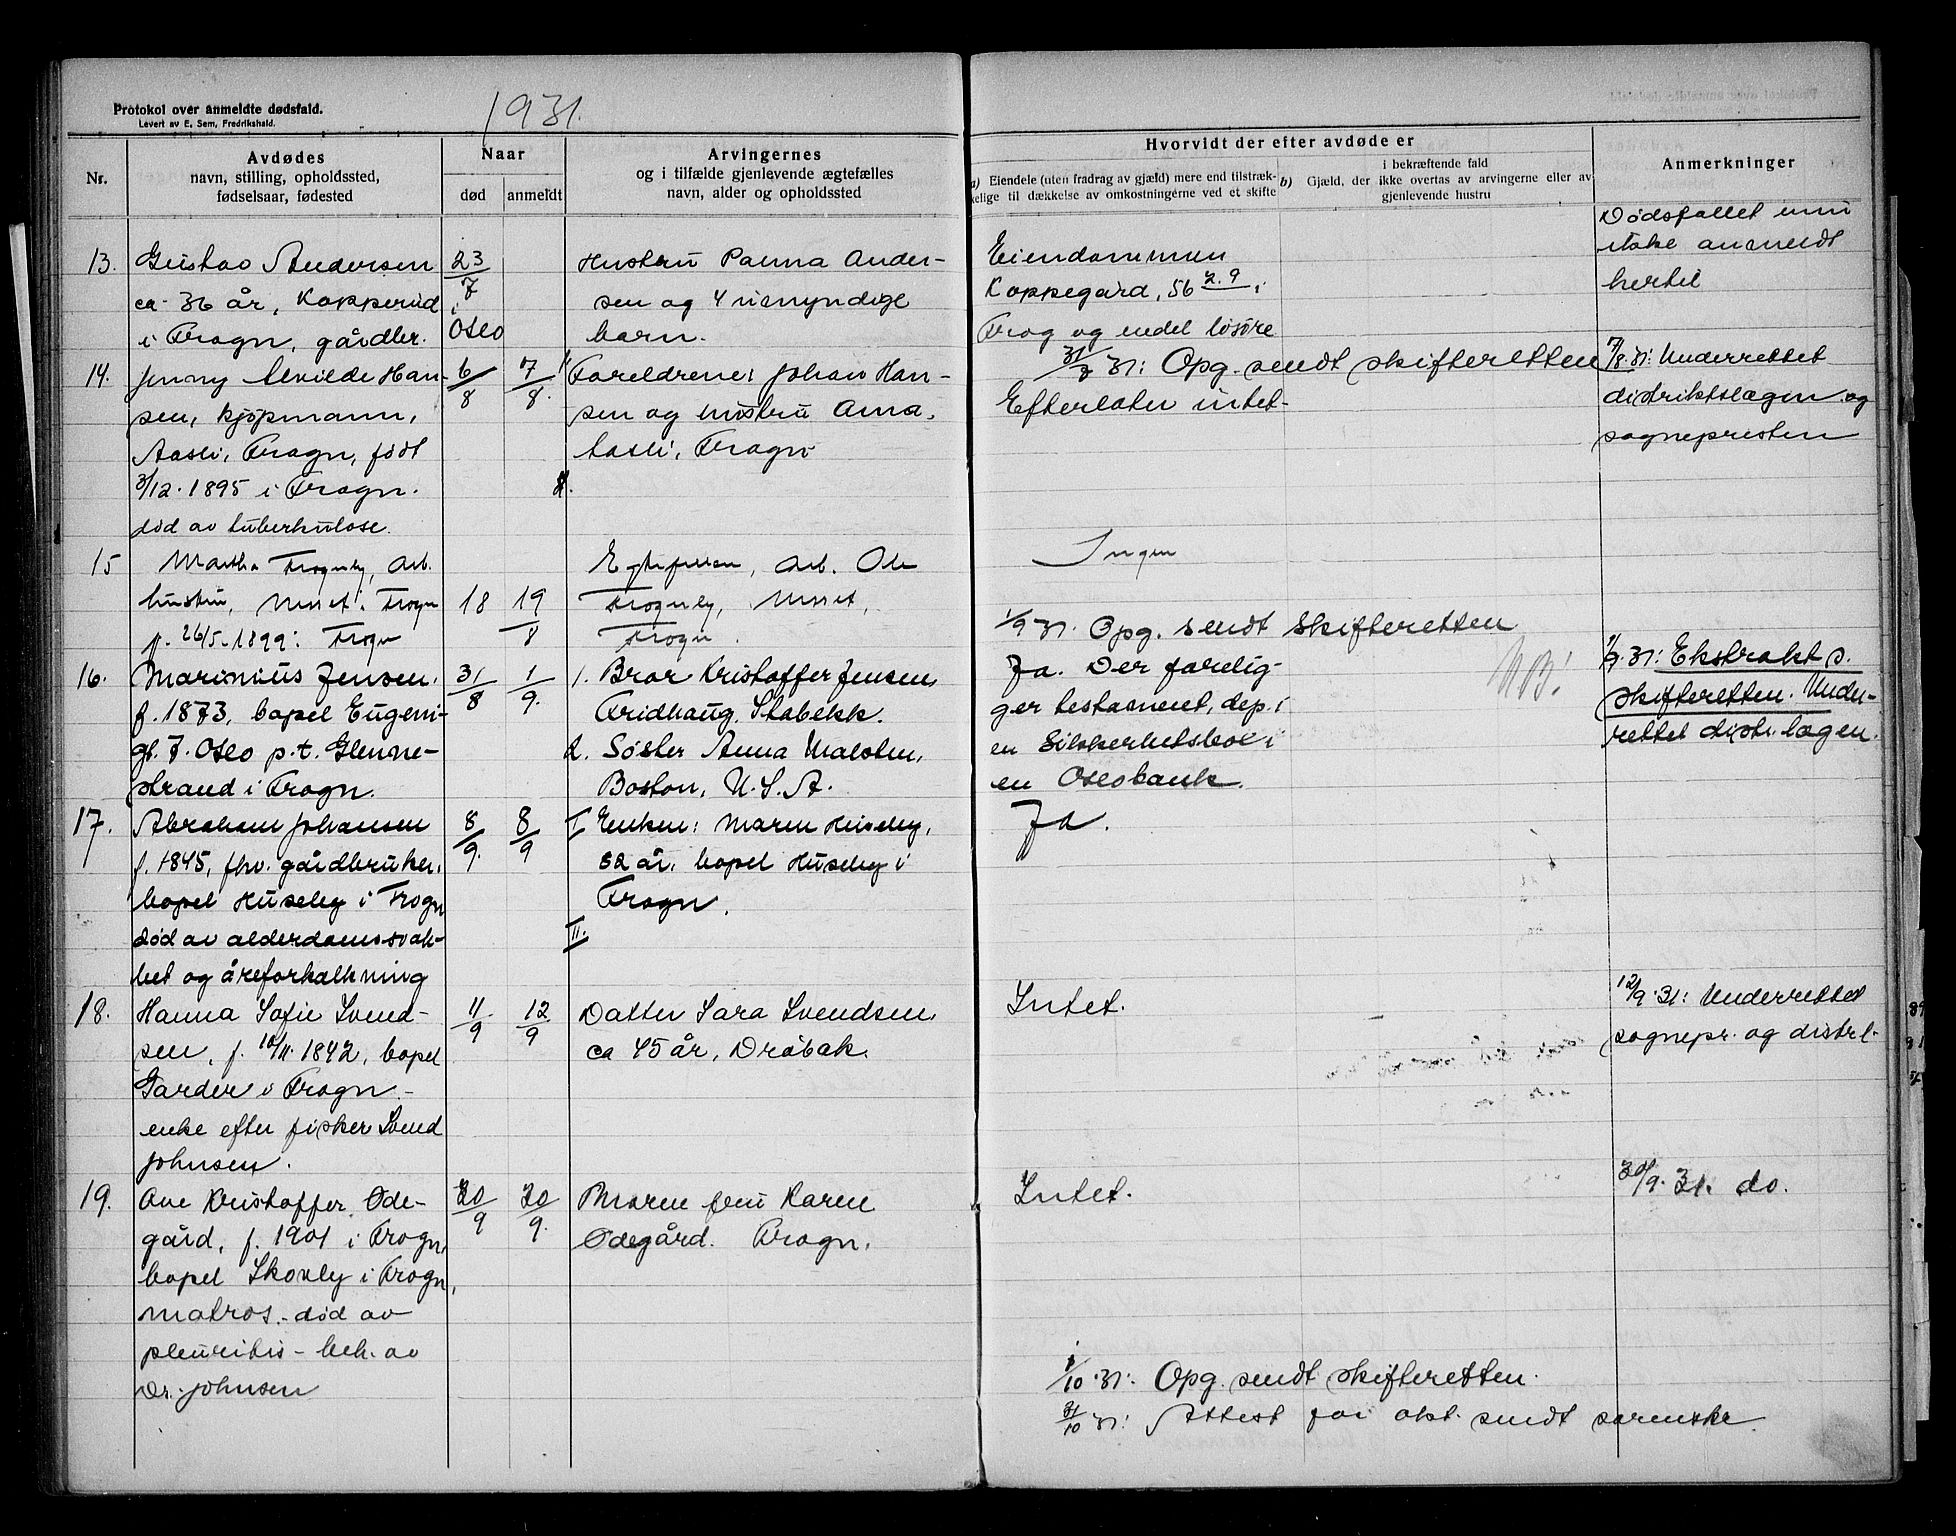 Protokol over anmeldte dødsfald.
Levert av E. Sem, Fredrikshald.
1931.
Nr.
Avdødes
navn, stilling, opholdssted,
fødselsaar, fødested
Naar
død
anmeldt
Arvingernes
og i tilfælde gjenlevende ægtefælles
navn, alder og opholdssted
Hvorvidt der efter avdøde er
a) Eiendele (uten fradrag av gjæld) mere end tilstræk-
kelige til dækkelse av omkostningerne ved et skifte
b) Gjæld, der i bekræftende fald ikke overtas av arvingerne eller av
gjenlevende hustru
Anmerkninger
13.
Gustav Andersen
ca. 36 år, Kopperud
i Frogn, gårdbr.
23/7
i
Oslo
Hustru Paula Ander-
sen og 4 umyndige
barn.
Eiendommen
Koppegård, 56 2.9 i
Frog og endel løsøre
Dødsfallet
ikke anmeldt
hertil
31/7 31: Opg. sendt skifteretten
14.
Jenny Alvilde Han-
sen, kjøpmann,
Aasli, Frogn, født
3/12. 1895 i Frogn.
død av tuberkulose.
6/8
7/8.
Foreldrene: Johan Han-
sen og hustru Anna,
Aasli, Frogn
Efterlater intet.
7/8.31: Underrettet
distriktslægen og
sognepresten
15
Martha Frognby, arb.
hustru, Nesset i Frogn
f. 26/5-1899 i Frogn
18
19/8
Egtefellen, arb. Ole
Frognby, Nesset,
Frogn.
Ingen
1/9 31. Opg. sendt skifteretten
16.
Marinius Jensen,
f. 1873, bopel Eugeni-
gt. 7. Oslo p.t. Glenne-
strand i Frogn.
31/8
1/9.
1. Bror Kristoffer Jensen,
Fridhaug, Stabekk.
2. Søster Anna
Boston, U.S.A.
Ja. Der forelig-
ger testament, dep. i
en sikkerhetsbox i
en Oslobank.
NB!
1/9.31: Ekstrakt s.
skifteretten. Under-
rettet distr. lægen.
17.
Abraham Johansen
f. 1845, fhv. gårdbruker,
bopel Huseby i Frogn
død av alderdomssvak-
het og åreforkalkning
8/9.
8/9
I Enken: Maren Huseby,
82 år, bopel Huseby i
Frogn.
II.
Ja.
18.
Hanna Sofie Svend-
sen, f. 10/11. 1842, bopel
Garder i Frogn. -
enke efter fisker Svend
Johnsen.
11/9
12/9
Datter Sara Svendsen,
ca 45 år, Drøbak.
Intet.
12/9.31: Underrettet
sognepr. og distr.l.
19.
Ove Kristoffer Øde-
gård, f. 1901 i Frogn,
bopel Skovly i Frogn,
matros. - død av
pleuritis - beh. av
Dr. Johnsen
20/9
20/9.
Moren fru Karen
Ødegård. Frogn.
Intet.
20/9.31. do.
1/10.31: Opg. sendt skifteretten.
31/10 31: Attest for okt. sendt sorenskr